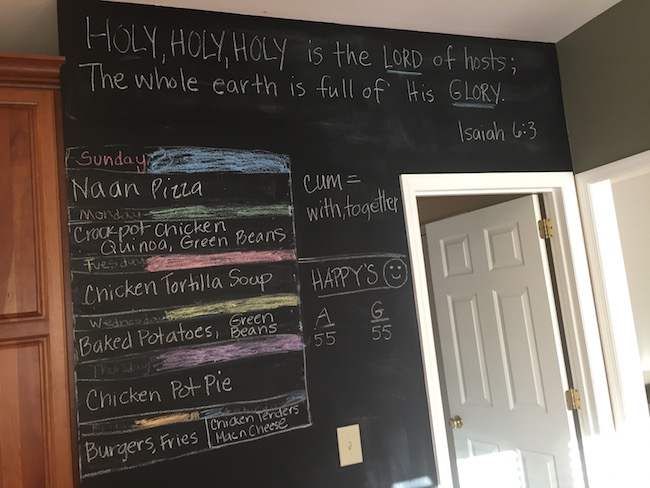 HOLY, HOLY, HOLY is the LORD of hosts;
The whole earth is full of His GLORY.
Isaiah 6:3
Sunday
Naan Pizza
Monday
Crockpot Chicken
Quinoa, Green Beans
Tuesday
Chicken Tortilla Soup
Wednesday
Baked Potatoes, Green
Beans
Thursday
Chicken Pot Pie
Burgers, Fries
Chicken Tenders
Mac n Cheese
cum =
with, together
HAPPY'S
A G
55 55